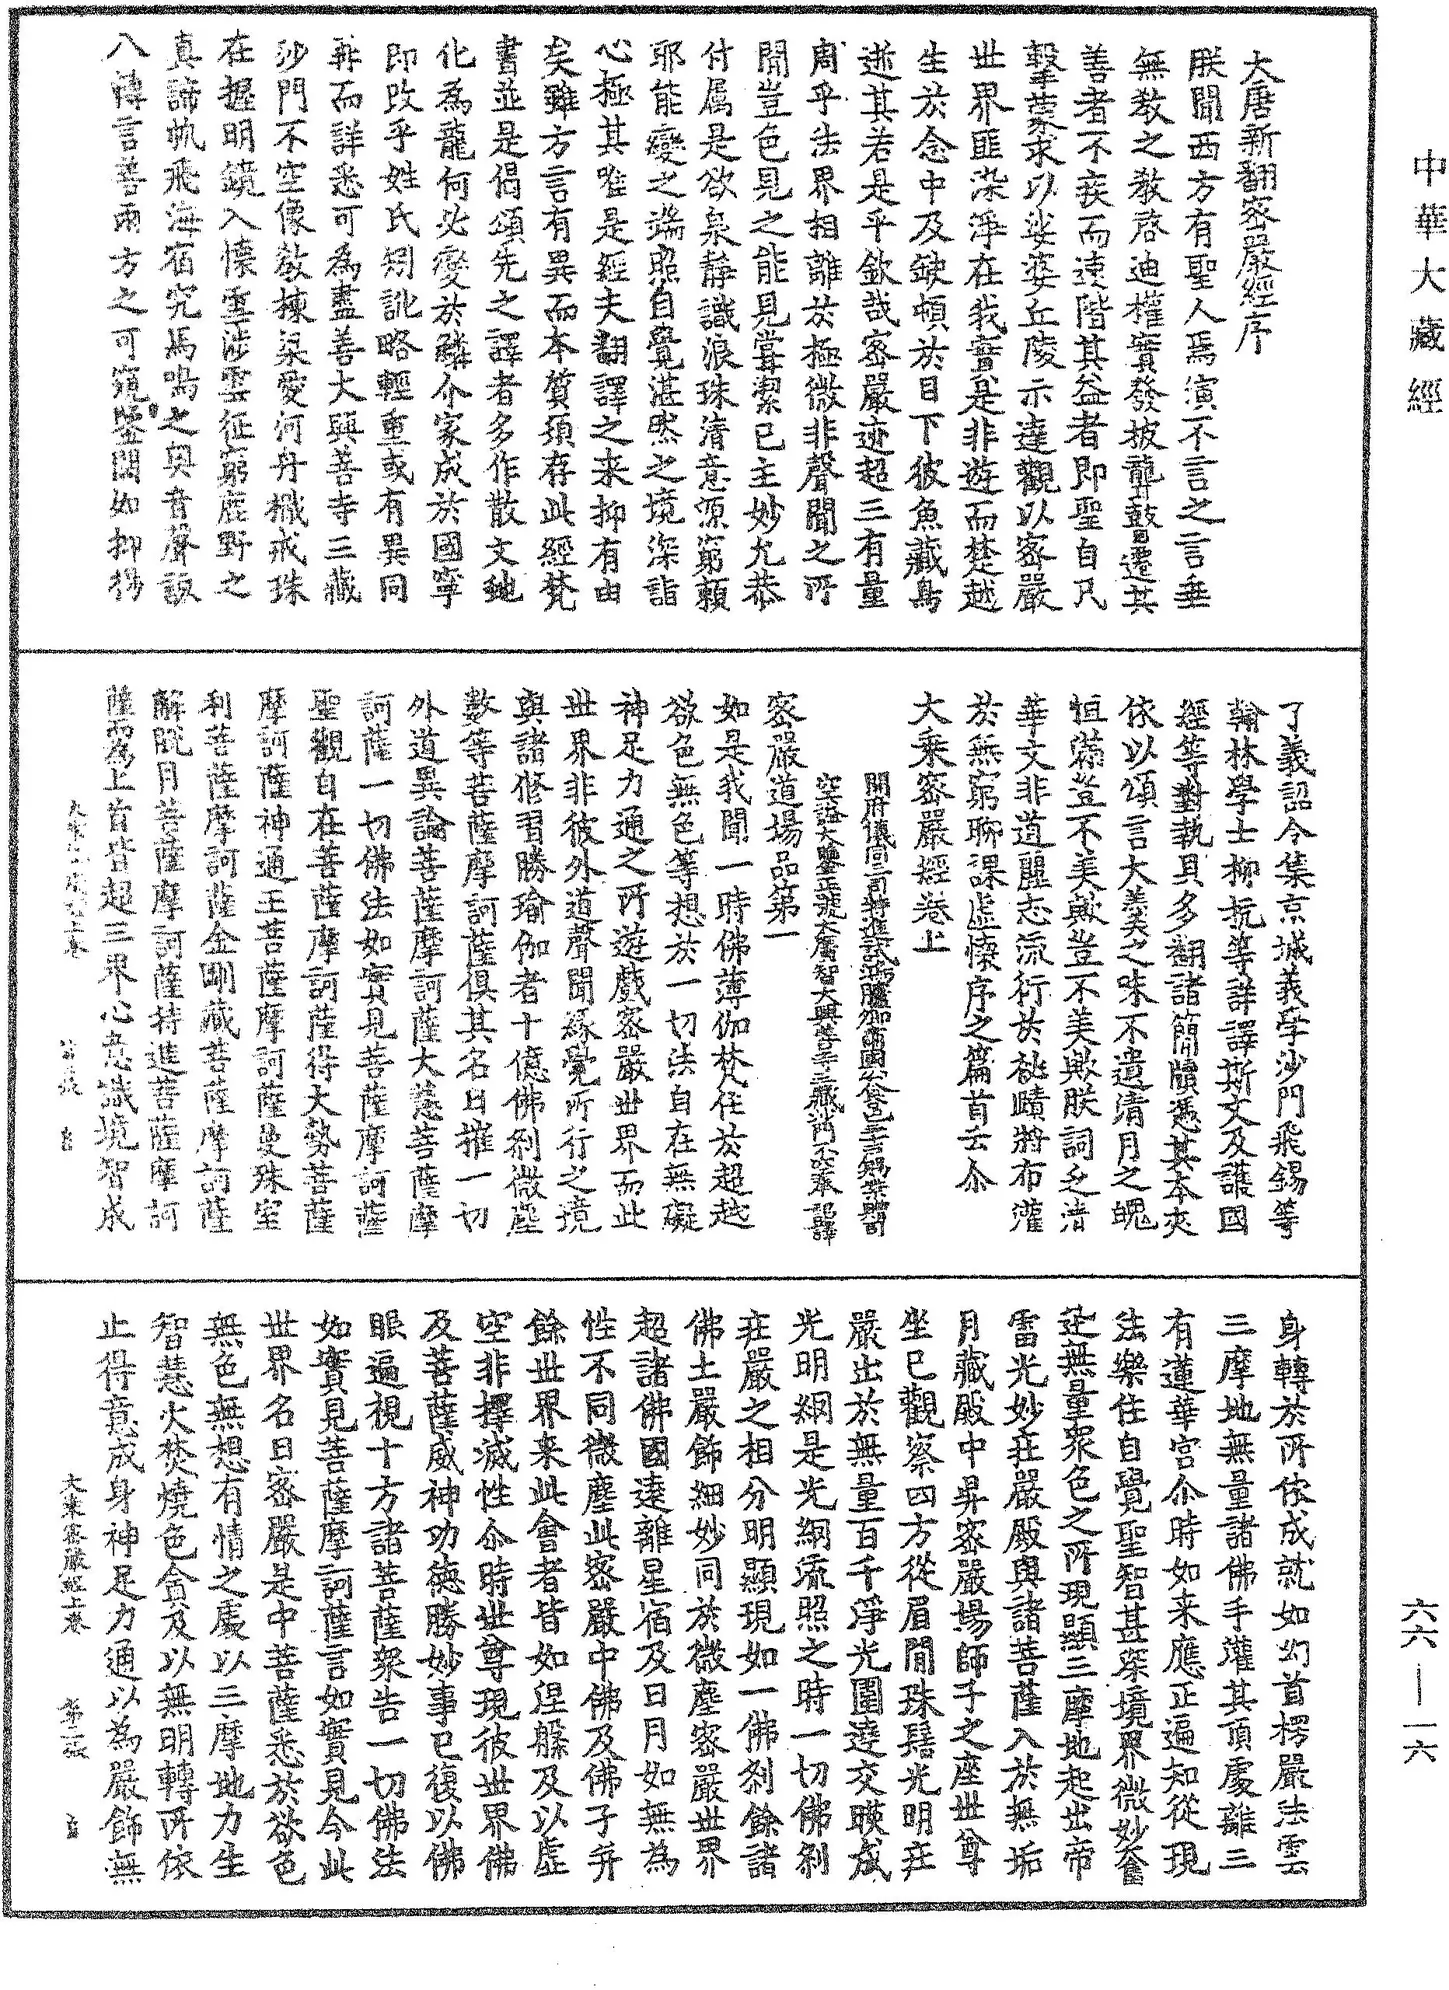 中華大藏經
大唐新翻密嚴經序
朕聞西方有聖人焉演不言之言垂
無教之教啓迪權實發披聾瞽遷其
善者不疾而速階其益者即聖自凡
擊蒙求以娑婆丘陵示達觀以密嚴
世界匪染淨在我實是非遊而楚越
生於念中及缺頓於目下彼魚藏鳥
逝其若是乎欽哉密嚴迹超三有量
周乎法界相離於極微非聲聞之所
聞豈色見之能見嘗潔己主妙允恭
付属是欲泉静識浪珠清意源窮賴
耶能變之端照自覺湛然之境深詣
心極其唯是經夫翻譯之来抑有由
矣雖方言有異而本質須存此經梵
書並是偈頌先之譯者多作散文蛇
化為龍何必變於鱗介家成於國寧
即改乎姓氏矧訛略輕重或有異同
再而詳悉可為盡善大興善寺三藏
沙門不空像教棟梁愛河舟檝戒珠
在握明鏡入懷雲涉雪征窮鹿野之
真諦帆飛海宿究馬鳴之奥旨聲詋
八轉言善兩方之可窺鑒闊如抑揚
了義詔令集京城義學沙門飛錫等
翰林學士柳抗等詳譯斯文及護國
經等對執貝多翻諸簡牘憑其本夾
依以頌言大羹之味不遺清月之魄
恒滿豈不美歟豈不美歟朕詞乏清
華文非道麗志流行於祕賾將布濩
於無窮聊課虛懷序之篇首云尒
大乘密嚴經卷上
開府儀同三司特進試鴻臚卿肅國公食邑三千戶賜紫贈司
空謚大鑒正號大廣智大興善寺三藏沙門不空奉 詔譯
密嚴道場品第一
如是我聞一時佛薄伽梵住於超越
欲色無色等想於一切法自在無礙
神足力通之所遊戲密嚴世界而此
世界非彼外道聲聞緣覺所行之境
與諸修習勝瑜伽者十億佛刹微塵
數等菩薩摩訶薩俱其名曰摧一切
外道異論菩薩摩訶薩大慧菩薩摩
訶薩一切佛法如實見菩薩摩訶薩
聖觀自在菩薩摩訶薩得大勢菩薩
摩訶薩神通王菩薩摩訶薩曼珠室
利菩薩摩訶薩金剛藏菩薩摩訶薩
解脫月菩薩摩訶薩持進菩薩摩訶
薩而為上首皆超三界心意識境智成
身轉於所依成就如幻首楞嚴法雲
三摩地無量諸佛手灌其頂處離三
有蓮華宮尒時如来應正遍知從現
法樂住自覺聖智甚深境界微妙奮
迅無量眾色之所現顯三摩地起出帝
雷光妙莊嚴殿與諸菩薩入於無垢
月藏殿中昇密嚴場師子之座世尊
坐已觀察四方從眉間珠髻光明莊
嚴出於無量百千淨光圍遶交暎成
光明網是光網流照之時一切佛刹
莊嚴之相分明顯現如一佛刹餘諸
佛土嚴飾細妙同於微塵密嚴世界
超諸佛國遠離星宿及日月如無為
性不同微塵此密嚴中佛及佛子并
餘世界来此會者皆如涅槃及以虛
空非擇滅性尒時世尊現彼世界佛
及菩薩威神功德勝妙事已復以佛
眼遍視十方諸菩薩眾告一切佛法
如實見菩薩摩訶薩言如實見今此
世界名曰密嚴是中菩薩悉於欲色
無色無想有情之處以三摩地力生
智慧火焚燒色貪及以無明轉所依
止得意成身神足力通以為嚴飾無
大乘密嚴經上卷
第二張
六六—一六